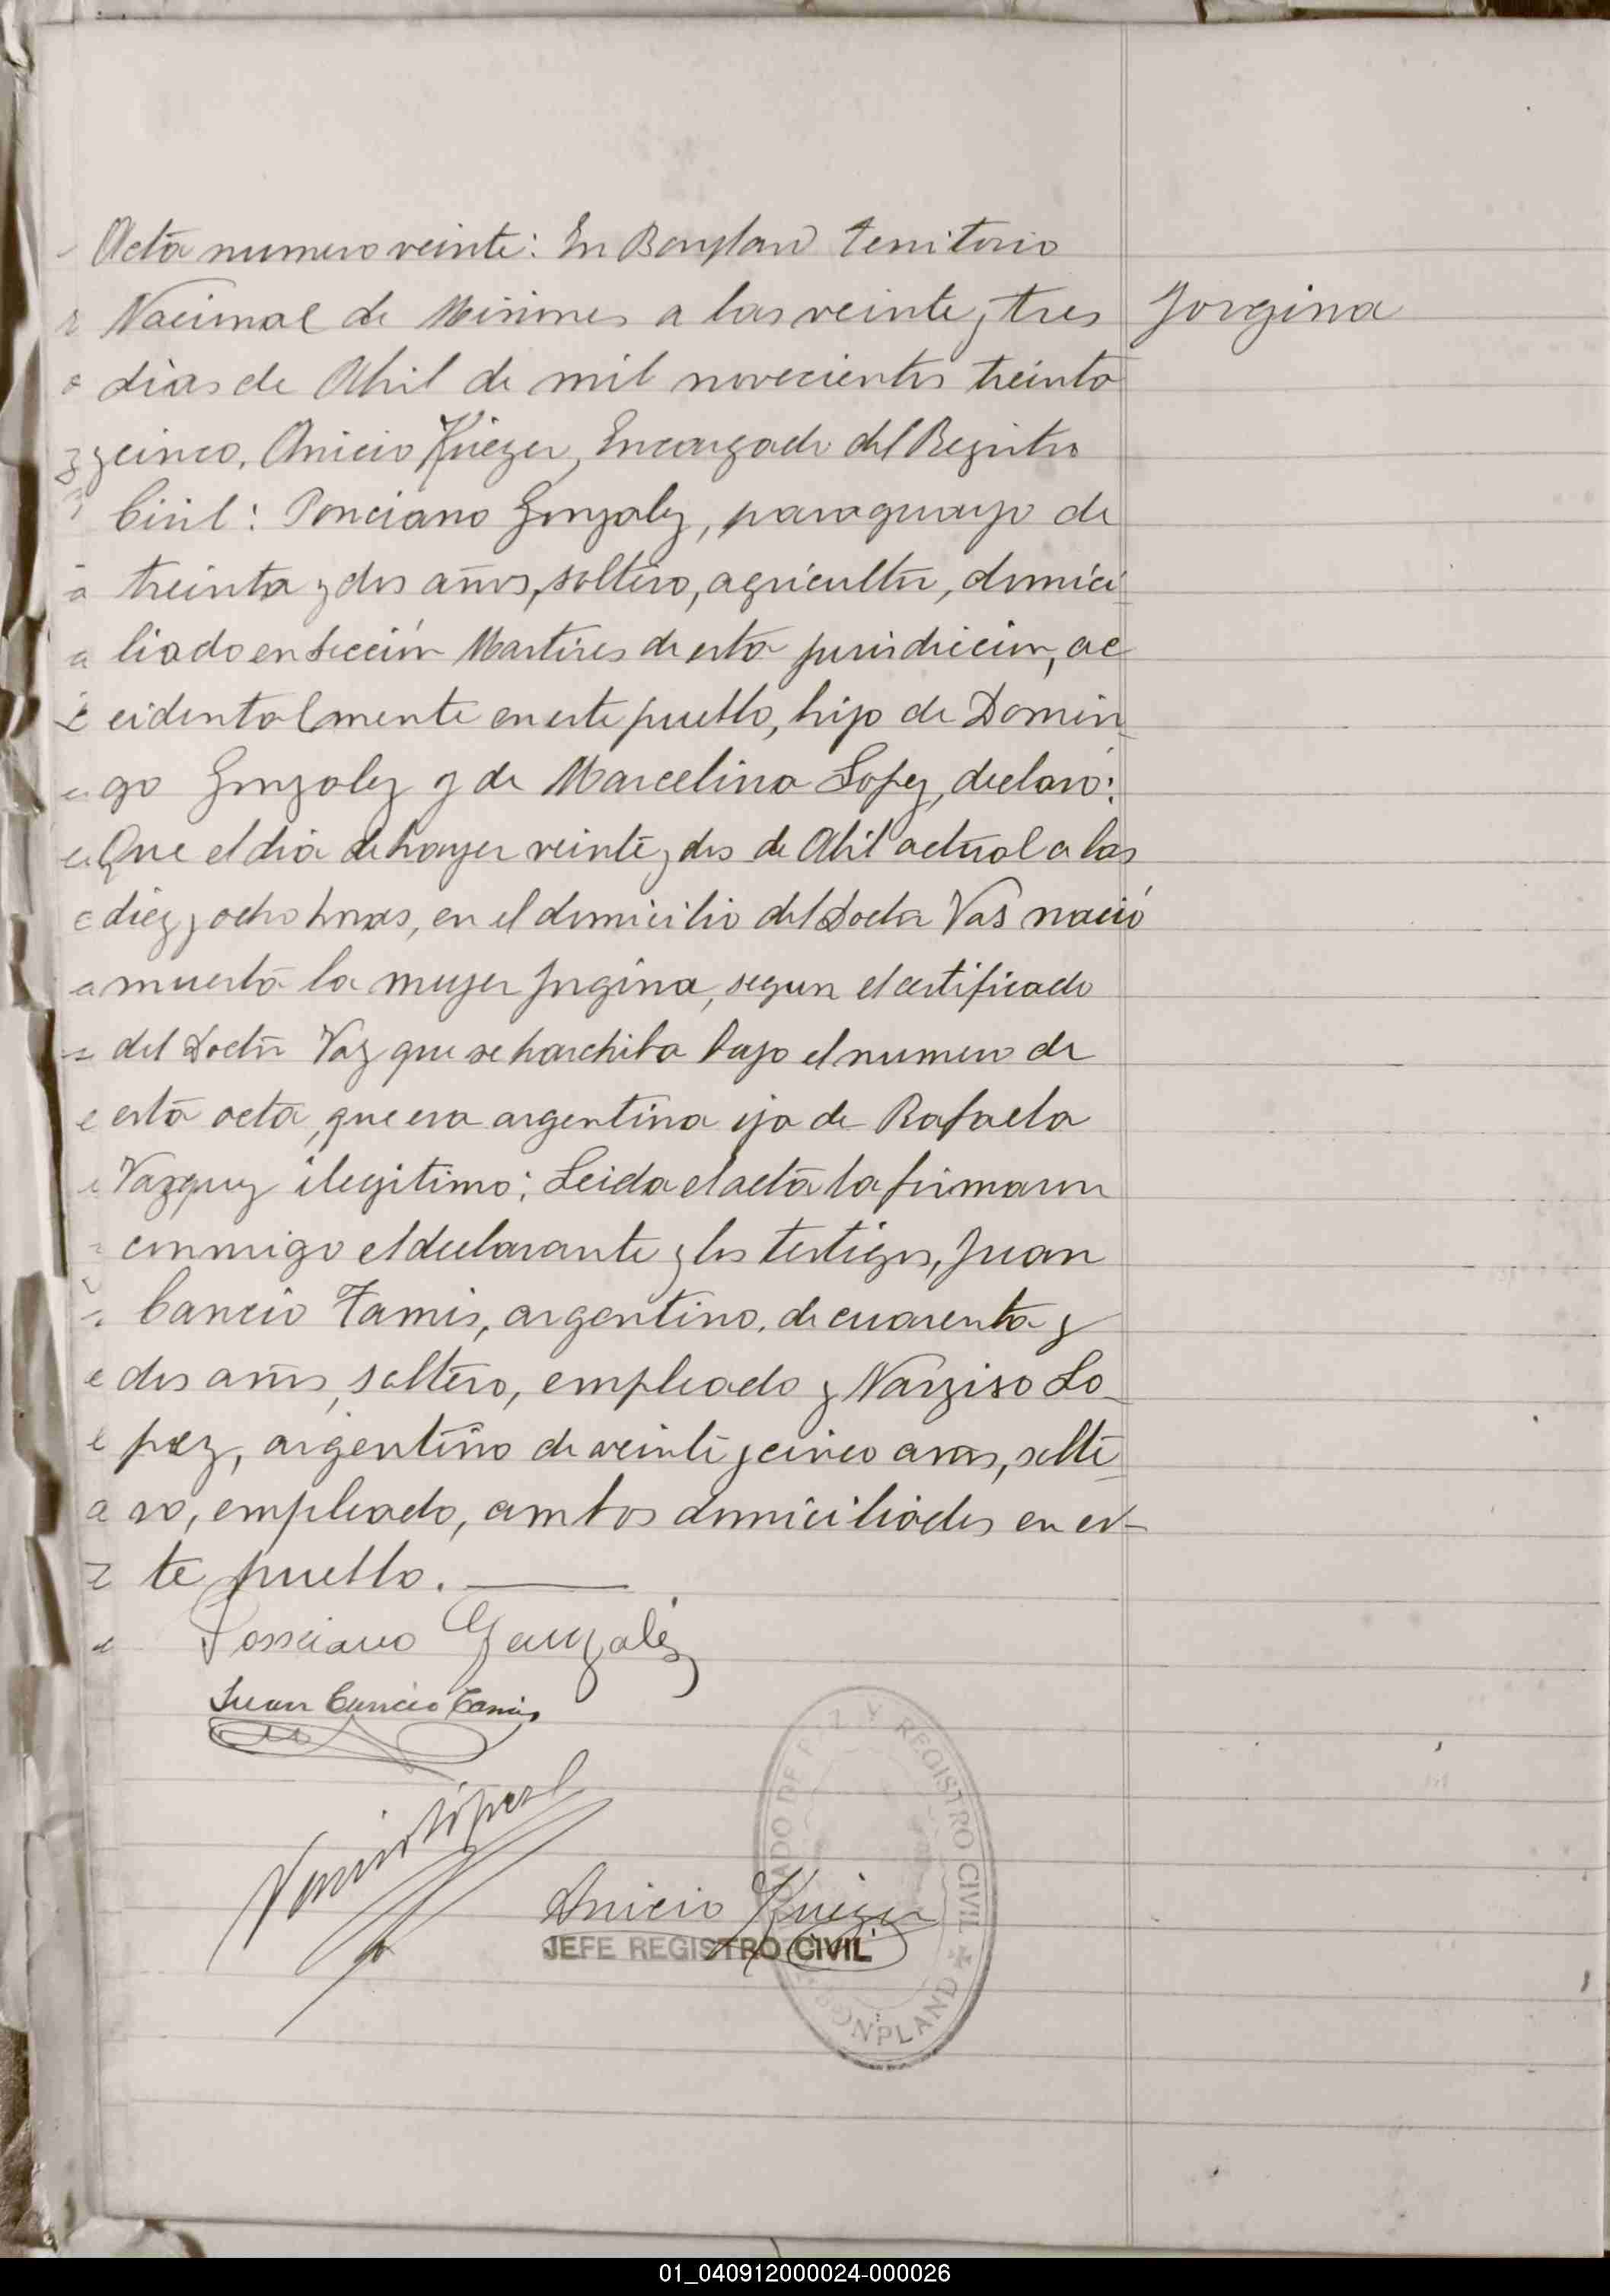 Acta numero veinte: En Bonpland territorio
Nacional de Misiones a las veinte y tres
Jorgina
dias de Abril de mil novecientos treinta
y cinco, Anicio Krieger, Encargado del Registro
Civil: Ponciano Gonzalez, paraguayo de
treinta y dos años, soltero, agricultor, domici
liado en Sección Martires de esta jurisdiccion, ac
cidentalmente en este pueblo, hijo de Domin
go Gonzalez y de Marcelina Lopez, declaró:
Que el dia de hayer veinte y dos de Abril actual a las
diez y ocho horas, en el domicilio del Doctor Vas nació
muerta la mujer Jorgina, segun el certificado
del Doctor Vaz que se harchiba bajo el numero de
esta acta, que era argentina ija de Rafaela
Vazquez ilegitimo; Leida el acta la firmaron
conmigo el declarante y los testigos, Juan
Cancio Tamis, argentino, de cuarenta y
dos años, soltero, empleado y Narziso Lo-
pez, argentino de veinte y cinco anos, solte
ro, empleado, ambos domiciliados en es-
te pueblo.
Ponciano Gonzalez
Juan Cancio Tamis
Narciso Lópes
Anicio Krieger
JEFE REGISTRO CIVIL
JUZGADO DE PAZ Y REGISTRO CIVIL
BONPLAND
01_040912000024-000026